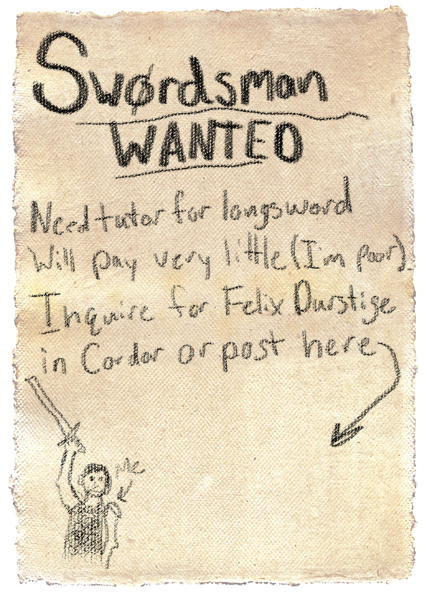 Swørdsman
WANTED
Need tutor for longsword
Will pay very little (I'm poor).
Inquire for Felix Durstige
in Cordor or post here
Me